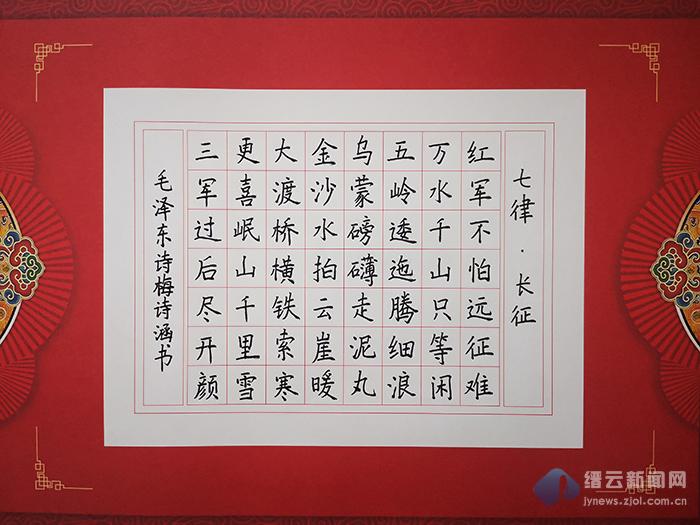 七律·长征
红军不怕远征难
万水千山只等闲
五岭逶迤腾细浪
乌蒙磅礴走泥丸
金沙水拍云崖暖
大渡桥横铁索寒
更喜岷山千里雪
三军过后尽开颜
毛泽东诗梅诗涵书
缙云新闻网
jynews.zjol.com.cn